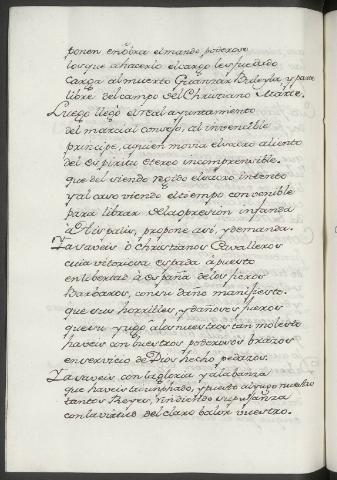 ponen en obra el mando poderoso
los que a hacerlo el cargo les fue dado
Carga al muerto Guasmar Baleyla y parte
libre del campo del Christiano Marte.
Luego llegó el real ayuntamiento
del marcial consejo, al invencible
principe, a quien movia el sacro aliento
del espiritu etereo incomprensible.
que del siendo regido el sacro intento
y al caso viendo el tiempo convenible
para librar de la opresion infanda
a Hispalis, propone assi, y demanda.
Ya saveis ò Christianos Cavalleros
cuia vitoriosa espada à puesto
en libertad à España de los fieros
Barbaros, con su daño manifiesto.
que sus horribles y dañosos fueros
que su yugo a los nuestros tan molesto
haveis con vuestros poderosos brazos
en servicio de Dios hecho pedazos.
Ya saveis, con la gloria y alabanza
que haveis triunphado, y puesto al yugo nuestro
tantos Reyes, rindiendo su pujanza
con la virtud del claro valor vuestro.